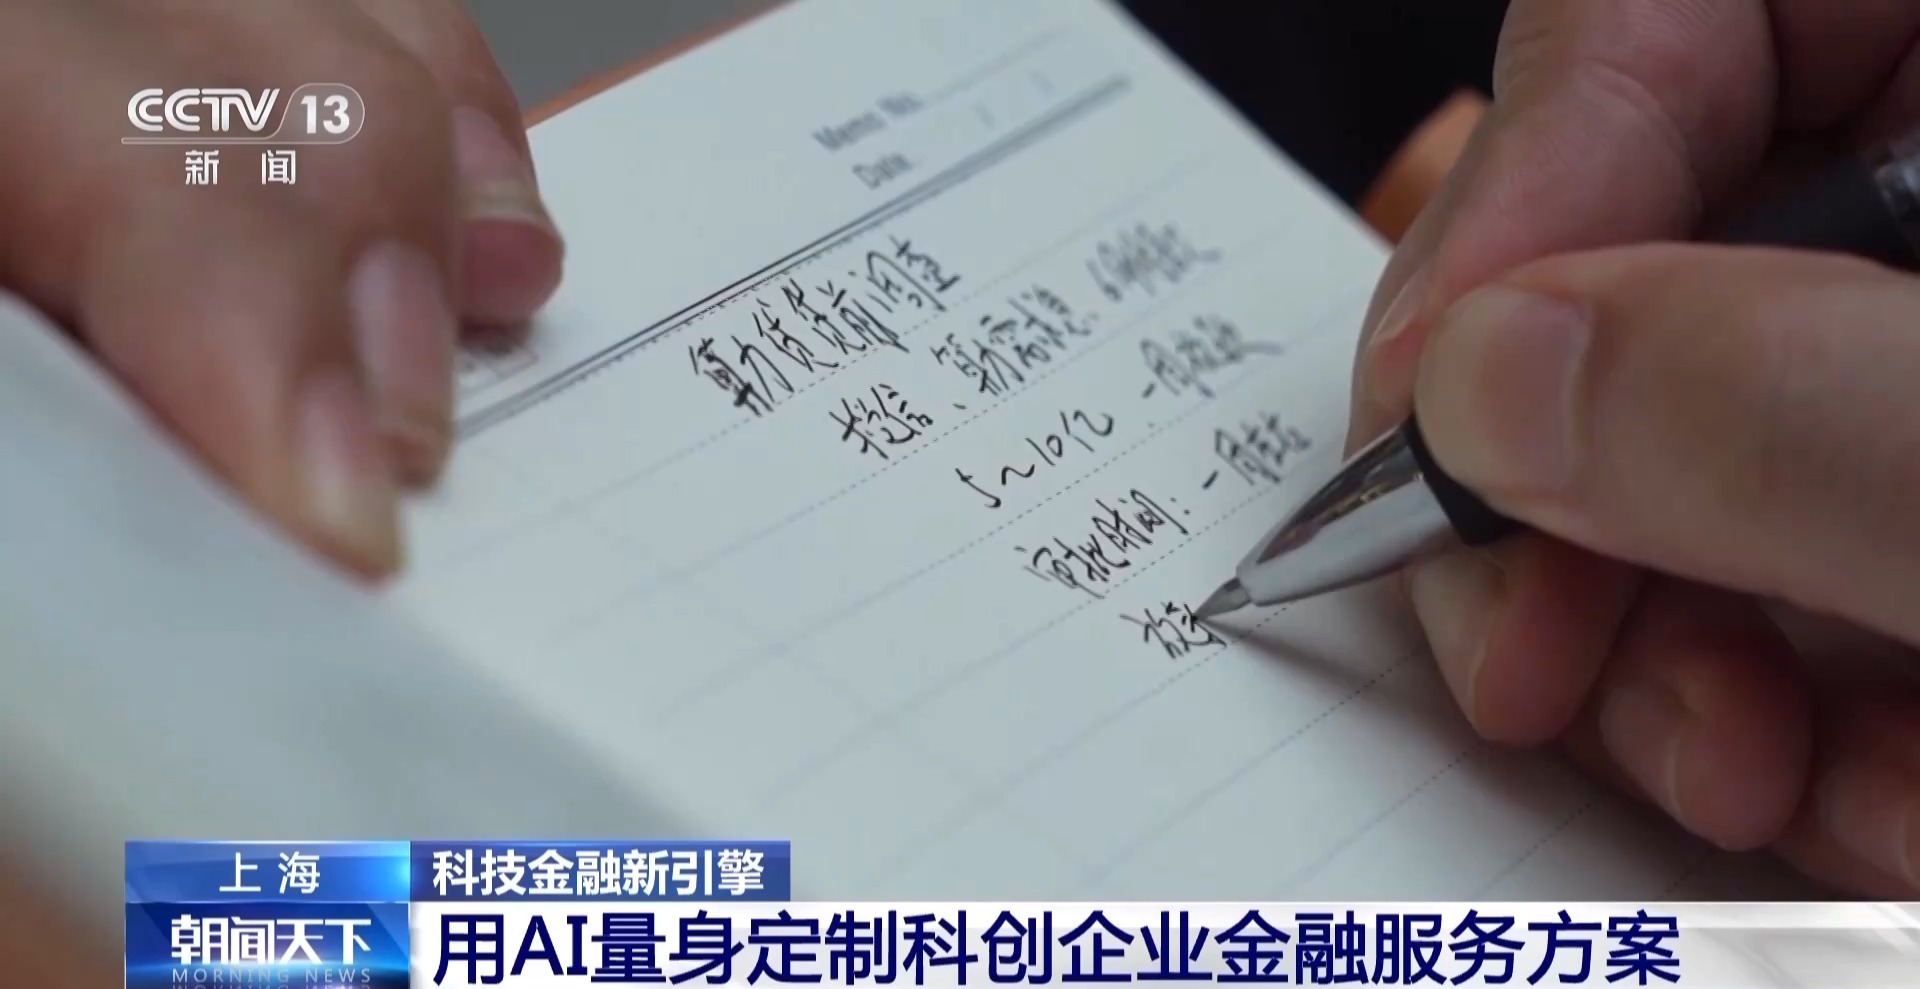 CCTV 13
新闻
Memo No.
Date
算力贷贷前调查
授信、算力需求
5~10亿
审批时间:一周左右
放
上海
科技金融新引擎
朝闻天下
MORNING NEWS
用AI量身定制科创企业金融服务方案